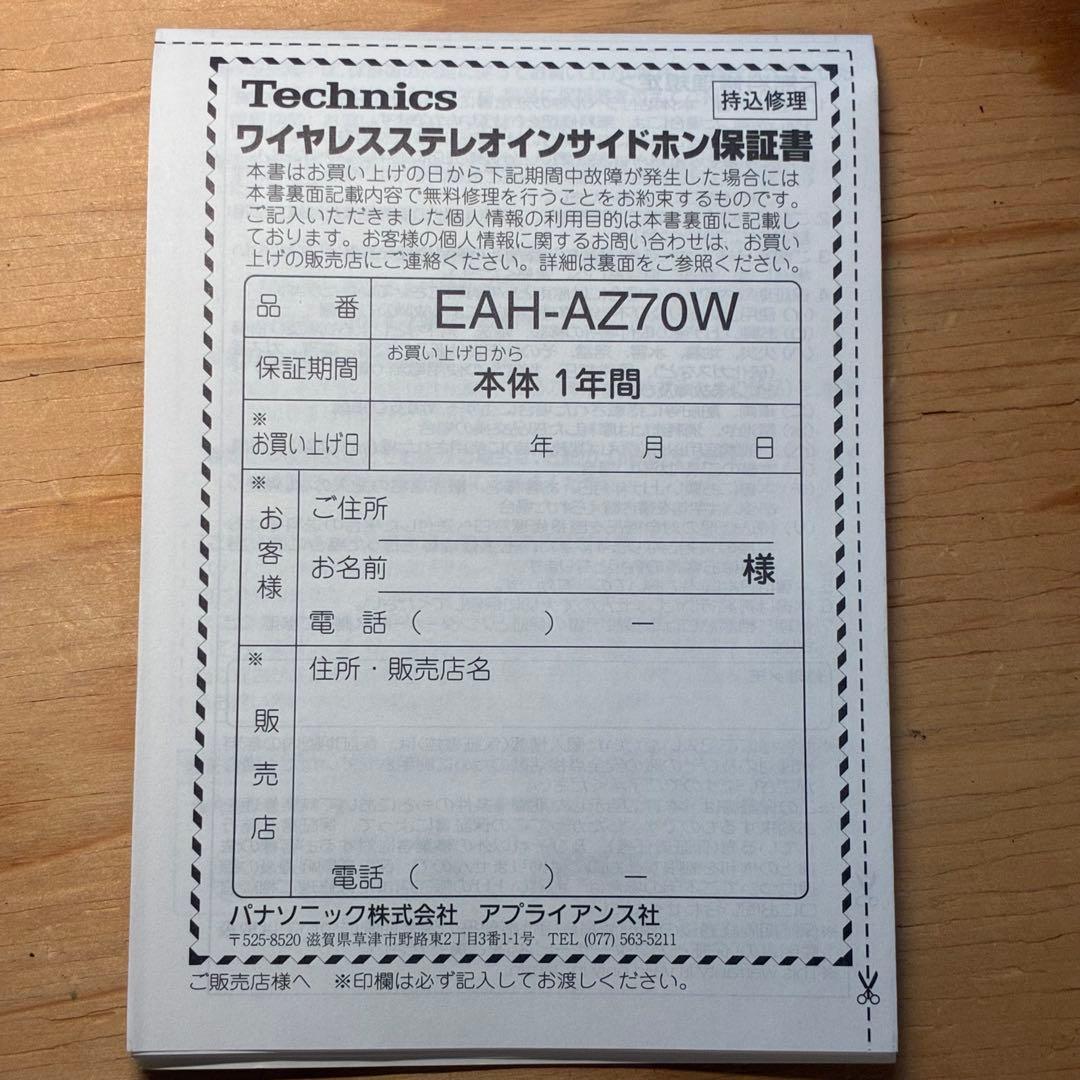 Technics
持込修理
ワイヤレスステレオインサイドホン保証書
本書はお買い上げの日から下記期間中故障が発生した場合には
本書裏面記載内容で無料修理を行うことをお約束するものです。
ご記入いただきました個人情報の利用目的は本書裏面に記載し
ております。お客様の個人情報に関するお問い合わせは、お買い
上げの販売店にご連絡ください。詳細は裏面をご参照ください。
品 番 EAH-AZ70W
保証期間 お買い上げ日から
本体 1年間
※
お買い上げ日 年 月 日
※
お客様
ご住所
お名前 様
電 話 ( ) ー
※
販売店
住所・販売店名
電話 ( ) ー
パナソニック株式会社 アプライアンス社
〒525-8520 滋賀県草津市野路東2丁目3番1-1号 TEL (077) 563-5211
ご販売店様へ ※印欄は必ず記入してお渡しください。